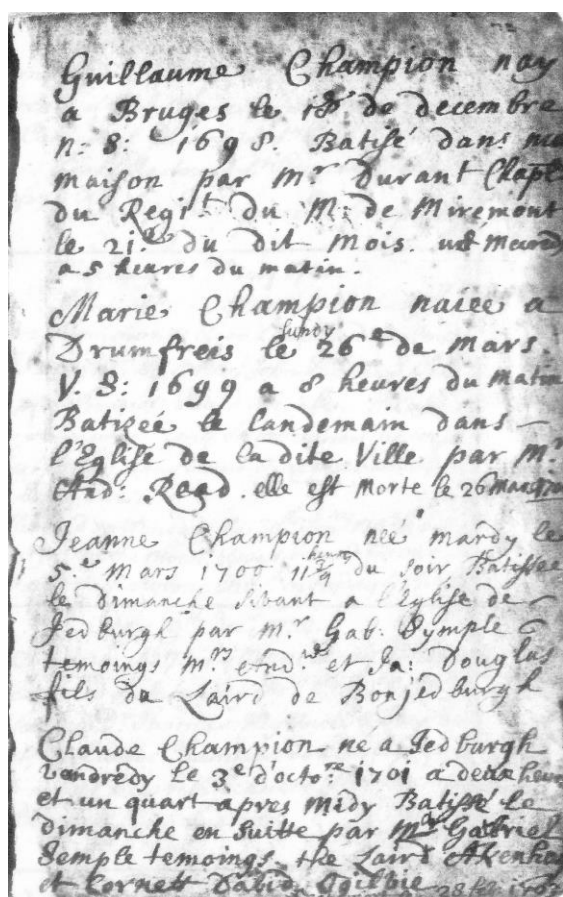 Guillaume Champion nay
a Bruges le 18e de decembre
n: S: 1698. Batisé dans ma
maison par Mr Durant Chapl
du Regit du M: de Miremont
le 21e du dit Mois.
a 5 heures du matin.
Marie Champion naiee a
Drumfreis le lundy 26e de Mars.
V. S: 1699 a 8 heures du Matin
Batizée le Landemain dans
l'Eglise de la dite Ville par Mr
And: Read. elle est Morte le 26 Mars
Jeanne Champion neé mardy le
5.e Mars 1700 11 3/4 heures du soir Batissée
le Dimanche sivant a l'Eglise de
Jedburgh par M.r Gab: Symple
temoings Mrs And.w et Ja: Douglas
fils du Laird de Bonjedburgh
Claude Champion né a Jedburgh
Vendredy le 3e d'octo.re 1701 a deux heures
et un quart apres Midy Batissé le
Dimanche en Suitte par Mr Gabriel
Semple temoings the Laird
et Cornett David Ogilvie